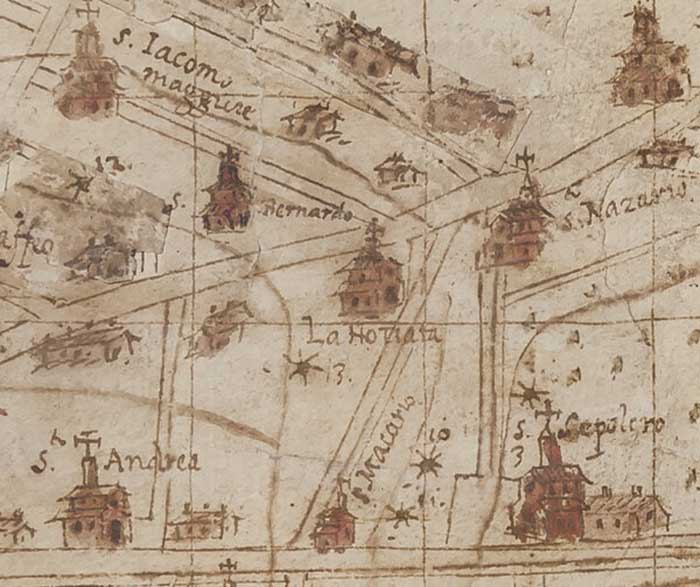 S. Iacomo
maggiore
12.
S. Bernardo
S. Nazario
La Notiata
13.
S. Macario
10
S. Sepolcro
3
S. Andrea